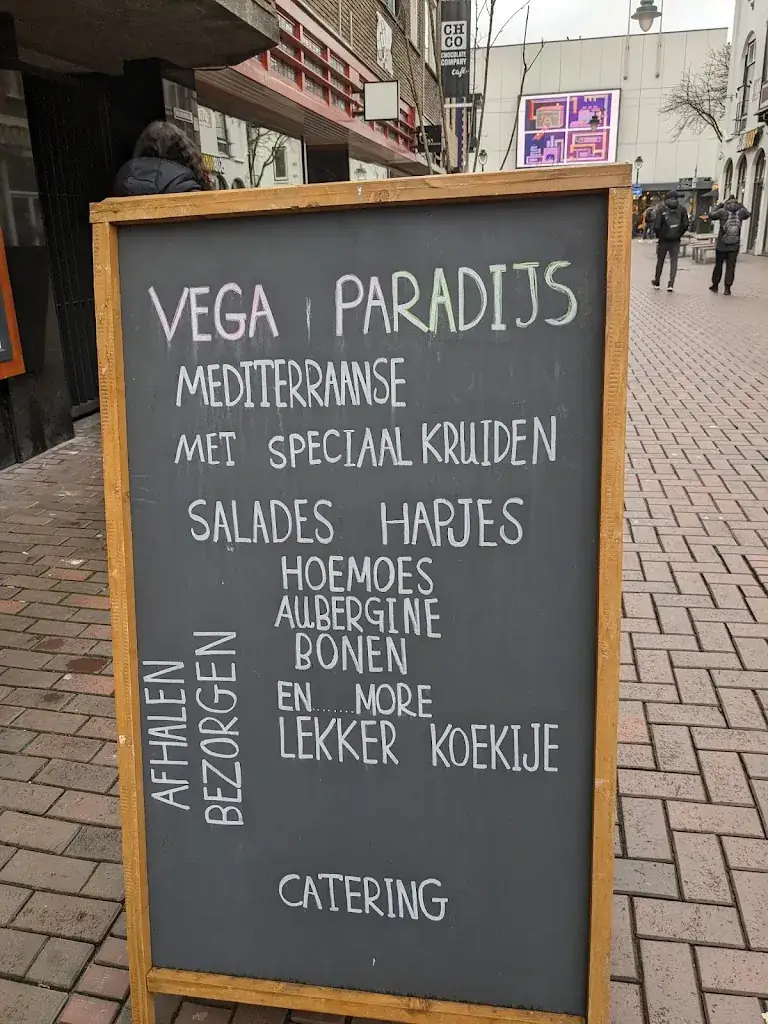 CH
CO
CHOCOLATE
COMPANY
café
VEGA PARADIJS
MEDITERRAANSE
MET SPECIAAL KRUIDEN
SALADES HAPJES
HOEMOES
AUBERGINE
BONEN
EN........MORE
LEKKER KOEKIJE
AFHALEN
BEZORGEN
CATERING